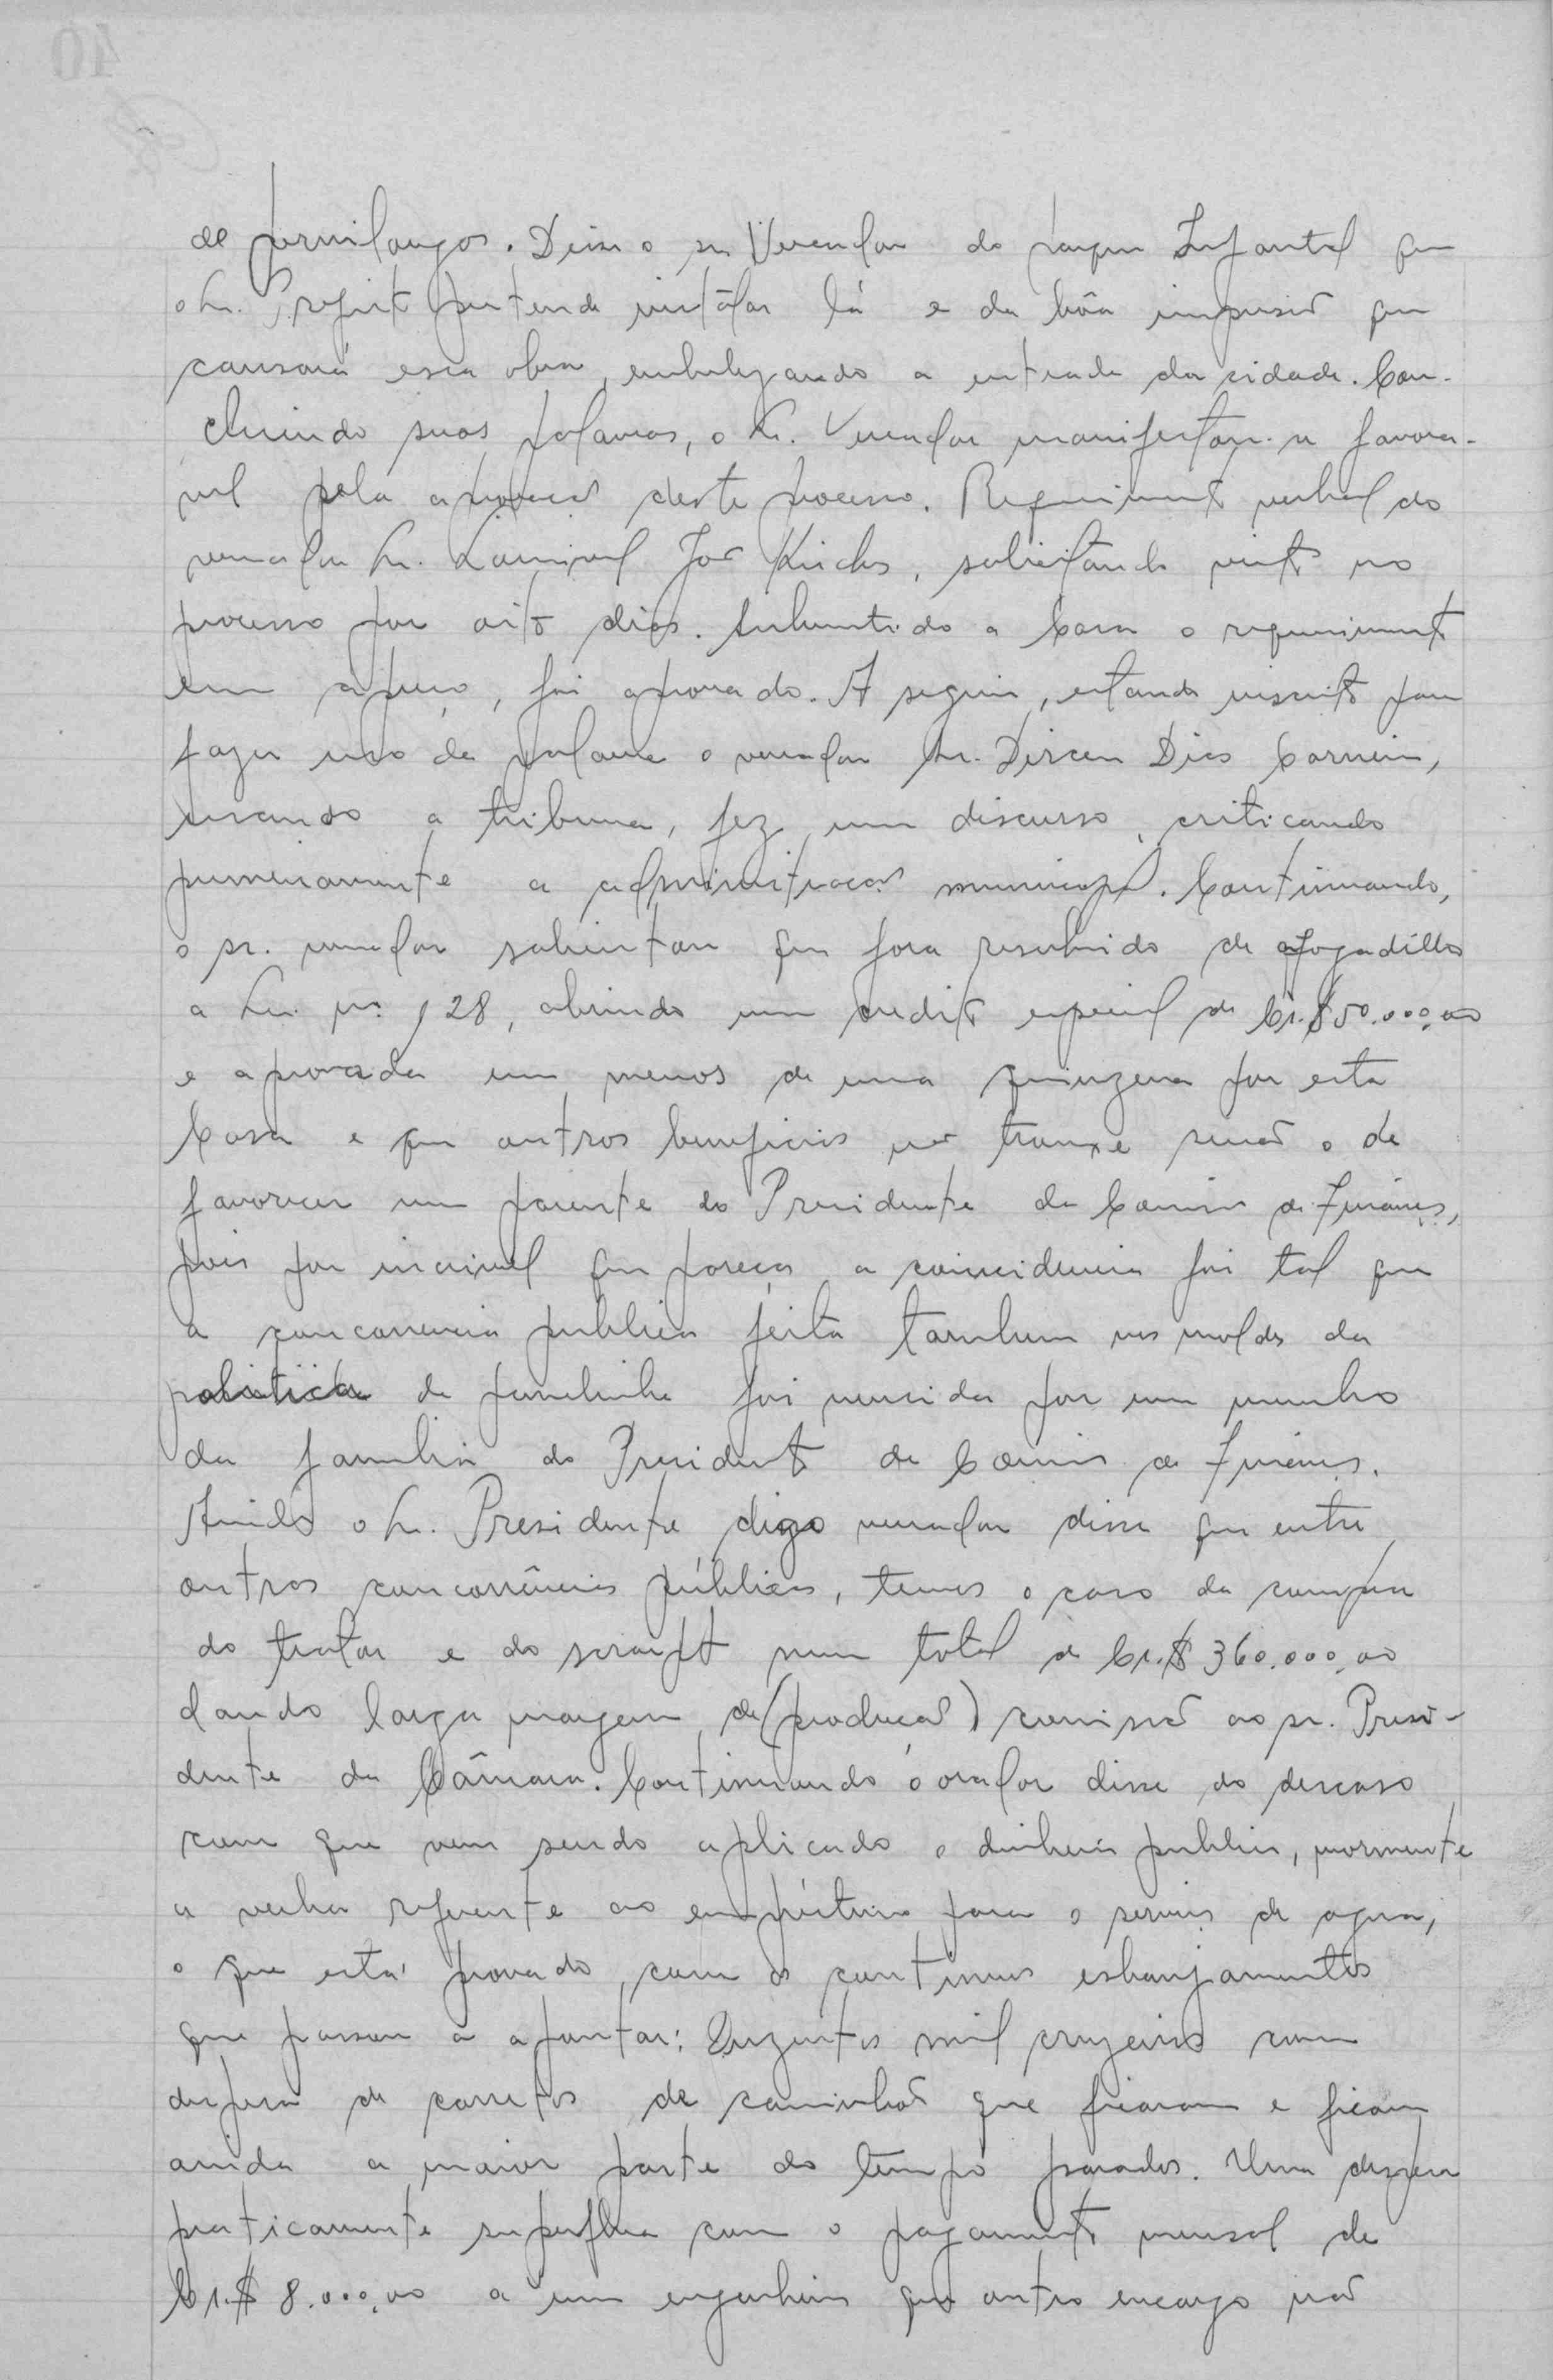 de pernilongos. Disse o sr. Vereador do parque Infantil que
o Sr. Prefeito pretende instalar lá e da bôa impressão que
causará essa obra, embelezando a entrada da cidade. Con-
cluindo suas palavras, o Sr. Vereador manifestou-se favora-
vel pela aprovação deste processo. Requerimento verbal do
vereador Sr. José, solicitando vista no
processo por oito dias. Submetido a Casa o requerimento
em apreço, foi aprovado. A seguir, estando inscrito para
fazer uso da palavra o vereador Sr. Dirceu Dias Carneiro,
usando a tribuna, fez um discurso, criticando
primeiramente a administração municipal. Continuando,
o sr. vereador salientou que fora resolvido de afogadilho
a Lei nº 128, abrindo um credito especial de Cr.$50.000,00
e aprovada em menos de uma quinzena por esta
Casa e que outros beneficios não trouxe senão o de
favorecer um parente do Presidente da Comissão de Finanças,
pois por incrivel que pareça a coincidencia foi tal que
a concorrencia publica feita tambem nos moldes da
politica de familinha foi vencida por um membro
da familia do Presidente da Comissão de Finanças.
Ainda o Sr. Presidente digo vereador disse que entre
outras concorrências públicas, temos o caso da compra
do trator e do scraipt num total de Cr.$ 360.000,00
dando larga margem de (produção) comissão ao sr. Presi-
dente da Câmara. Continuando o orador disse do descaso
com que vem sendo aplicado o dinheiro publico, mormente
a verba referente ao empréstimo para o serviço de agua,
o que está provado com os continuos esbanjamentos
que passou a apontar: Duzentos mil cruzeiros com
despesa de carretos de caminhão que ficaram e ficam
ainda a maior parte do tempo parados. Uma despesa
praticamente superflua com o pagamento mensal de
Cr.$ 8.000,00 a um engenheiro que outro encargo não